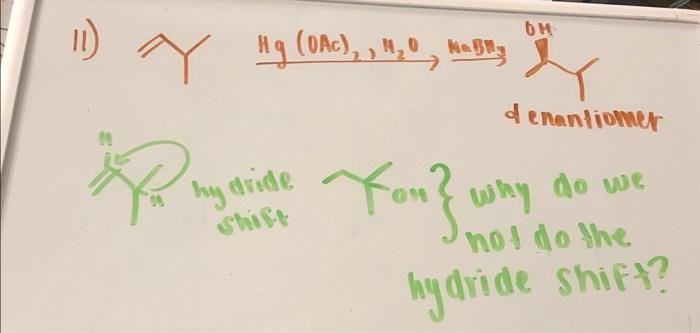 11)
Hg(OAc)₂, H₂O
NaBH₄
OH
d enantiomer
H
H
hydride
shift
OH } why do we
not do the
hydride shift?